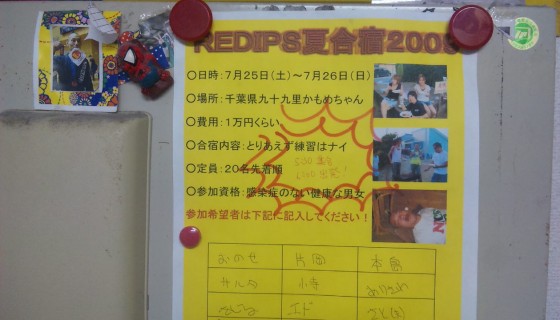 REDIPS夏合宿200
○日時：7月25日（土）～7月26日（日）
○場所：千葉県九十九里かもめちゃん
○費用：1万円くらい
○合宿内容：とりあえず練習はナイ
○定員：20名先着順
○参加資格：感染症のない健康な男女
参加希望者は下記に記入してください！
おのせ 片岡 本島
小寺
エド